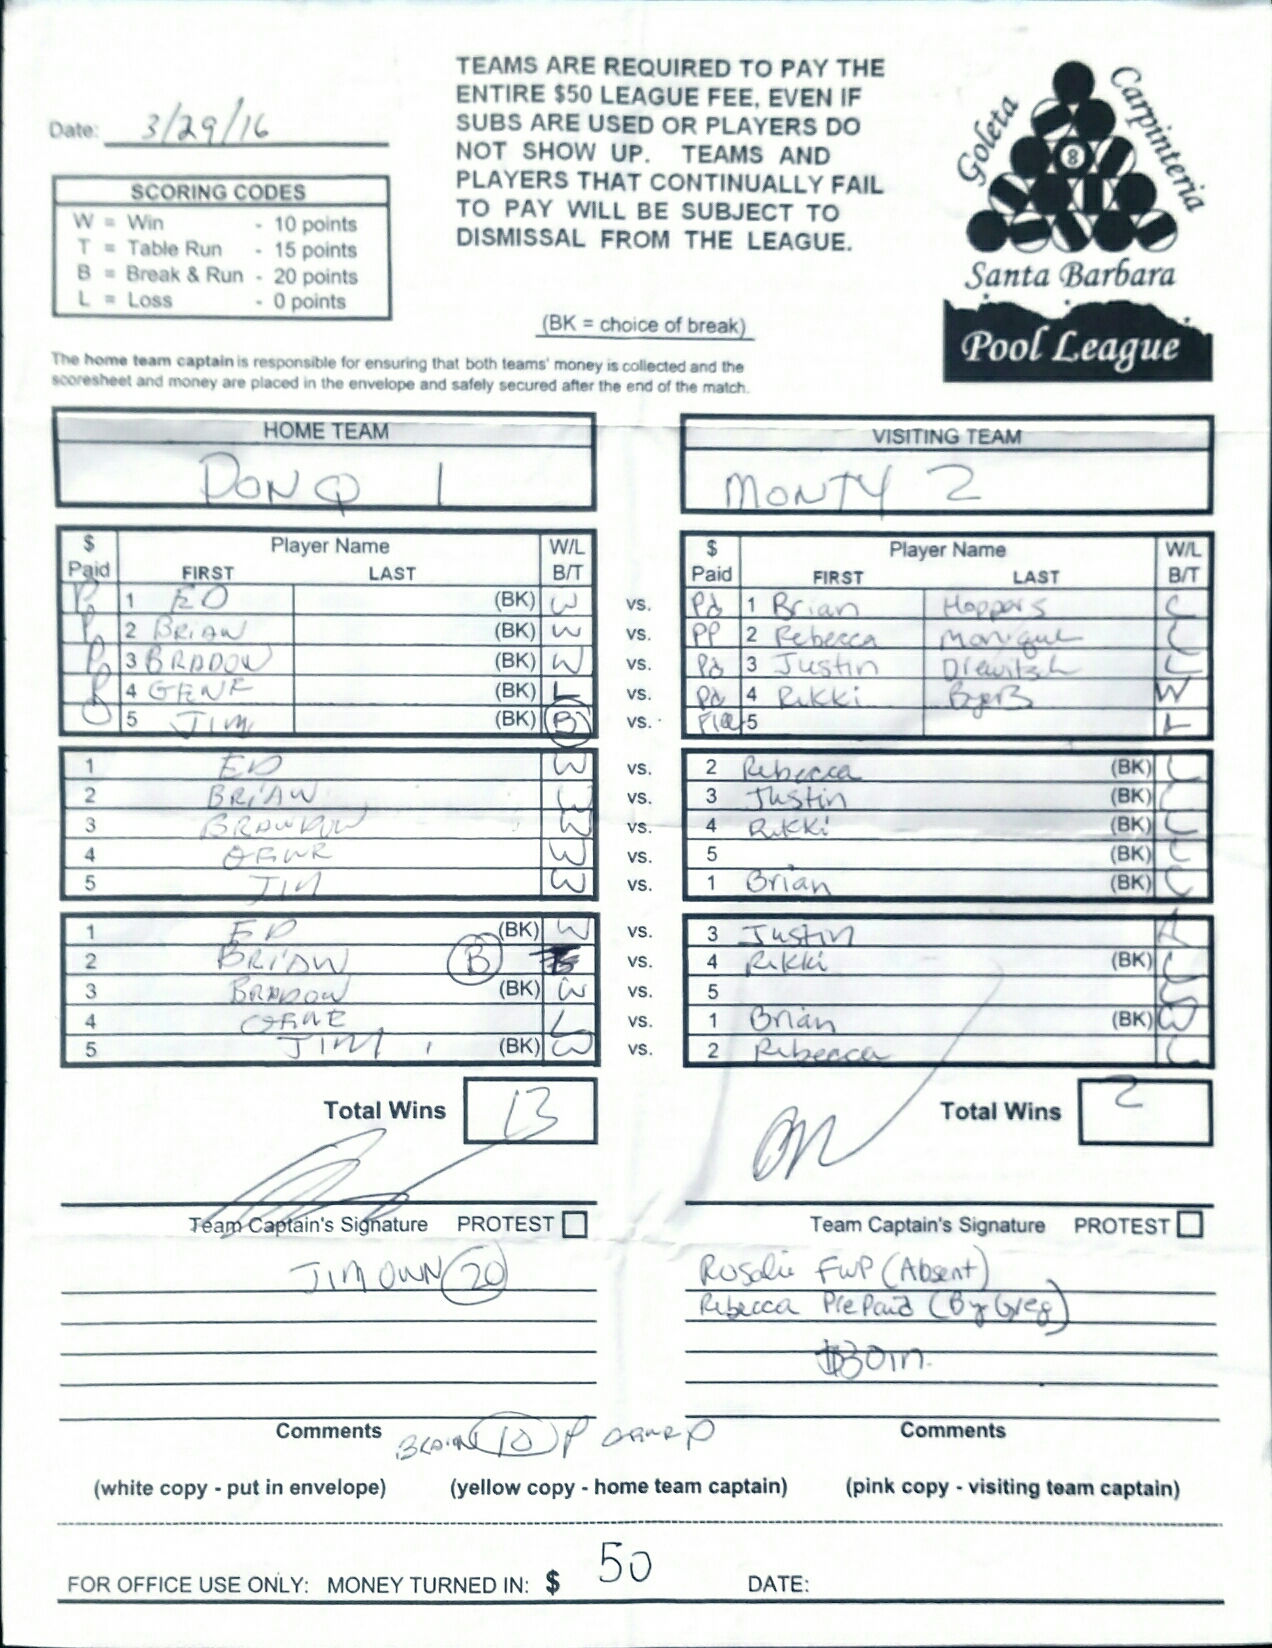 TEAMS ARE REQUIRED TO PAY THE
ENTIRE $50 LEAGUE FEE, EVEN IF
SUBS ARE USED OR PLAYERS DO
NOT SHOW UP. TEAMS AND
PLAYERS THAT CONTINUALLY FAIL
TO PAY WILL BE SUBJECT TO
DISMISSAL FROM THE LEAGUE.
Date: 3/29/16
SCORING CODES
W = Win - 10 points
T = Table Run - 15 points
B = Break & Run - 20 points
L = Loss - 0 points
(BK = choice of break)
Goleta
Carpinteria
8
Santa Barbara
Pool League
The home team captain is responsible for ensuring that both teams' money is collected and the
scoresheet and money are placed in the envelope and safely secured after the end of the match.
HOME TEAM
DON Q 1
VISITING TEAM
MONTY 2
$ Paid Player Name FIRST LAST W/L B/T
$ Paid Player Name FIRST LAST W/L B/T
1 ED (BK) W vs. Pd 1 Brian Hoppers L
2 BRIAN (BK) W vs. PP 2 Rebecca Monique L
3 BRADOW (BK) W vs. Pd 3 Justin L
4 GENE (BK) L vs. Pd 4 Rikki W
5 JIM (BK) B vs. 5 L
1 ED W vs. 2 Rebecca (BK) L
2 BRIAN W vs. 3 Justin (BK) L
3 W vs. 4 Rikki (BK) L
4 GENE W vs. 5 (BK) L
5 JIM W vs. 1 Brian (BK) L
1 ED (BK) W vs. 3 Justin
2 BRIAN B vs. 4 Rikki (BK) L
3 BRADOW (BK) W vs. 5
4 GENE L vs. 1 Brian (BK) W
5 JIM (BK) W vs. 2 Rebecca L
Total Wins 13
Total Wins 2
Team Captain's Signature PROTEST
Team Captain's Signature PROTEST
JIM OWN 20
Rosalie FWP (Absent)
Rebecca PrePaid (By Greg)
$30 in.
Comments
Comments
10 P P
(white copy - put in envelope) (yellow copy - home team captain) (pink copy - visiting team captain)
FOR OFFICE USE ONLY: MONEY TURNED IN: $ 50 DATE: